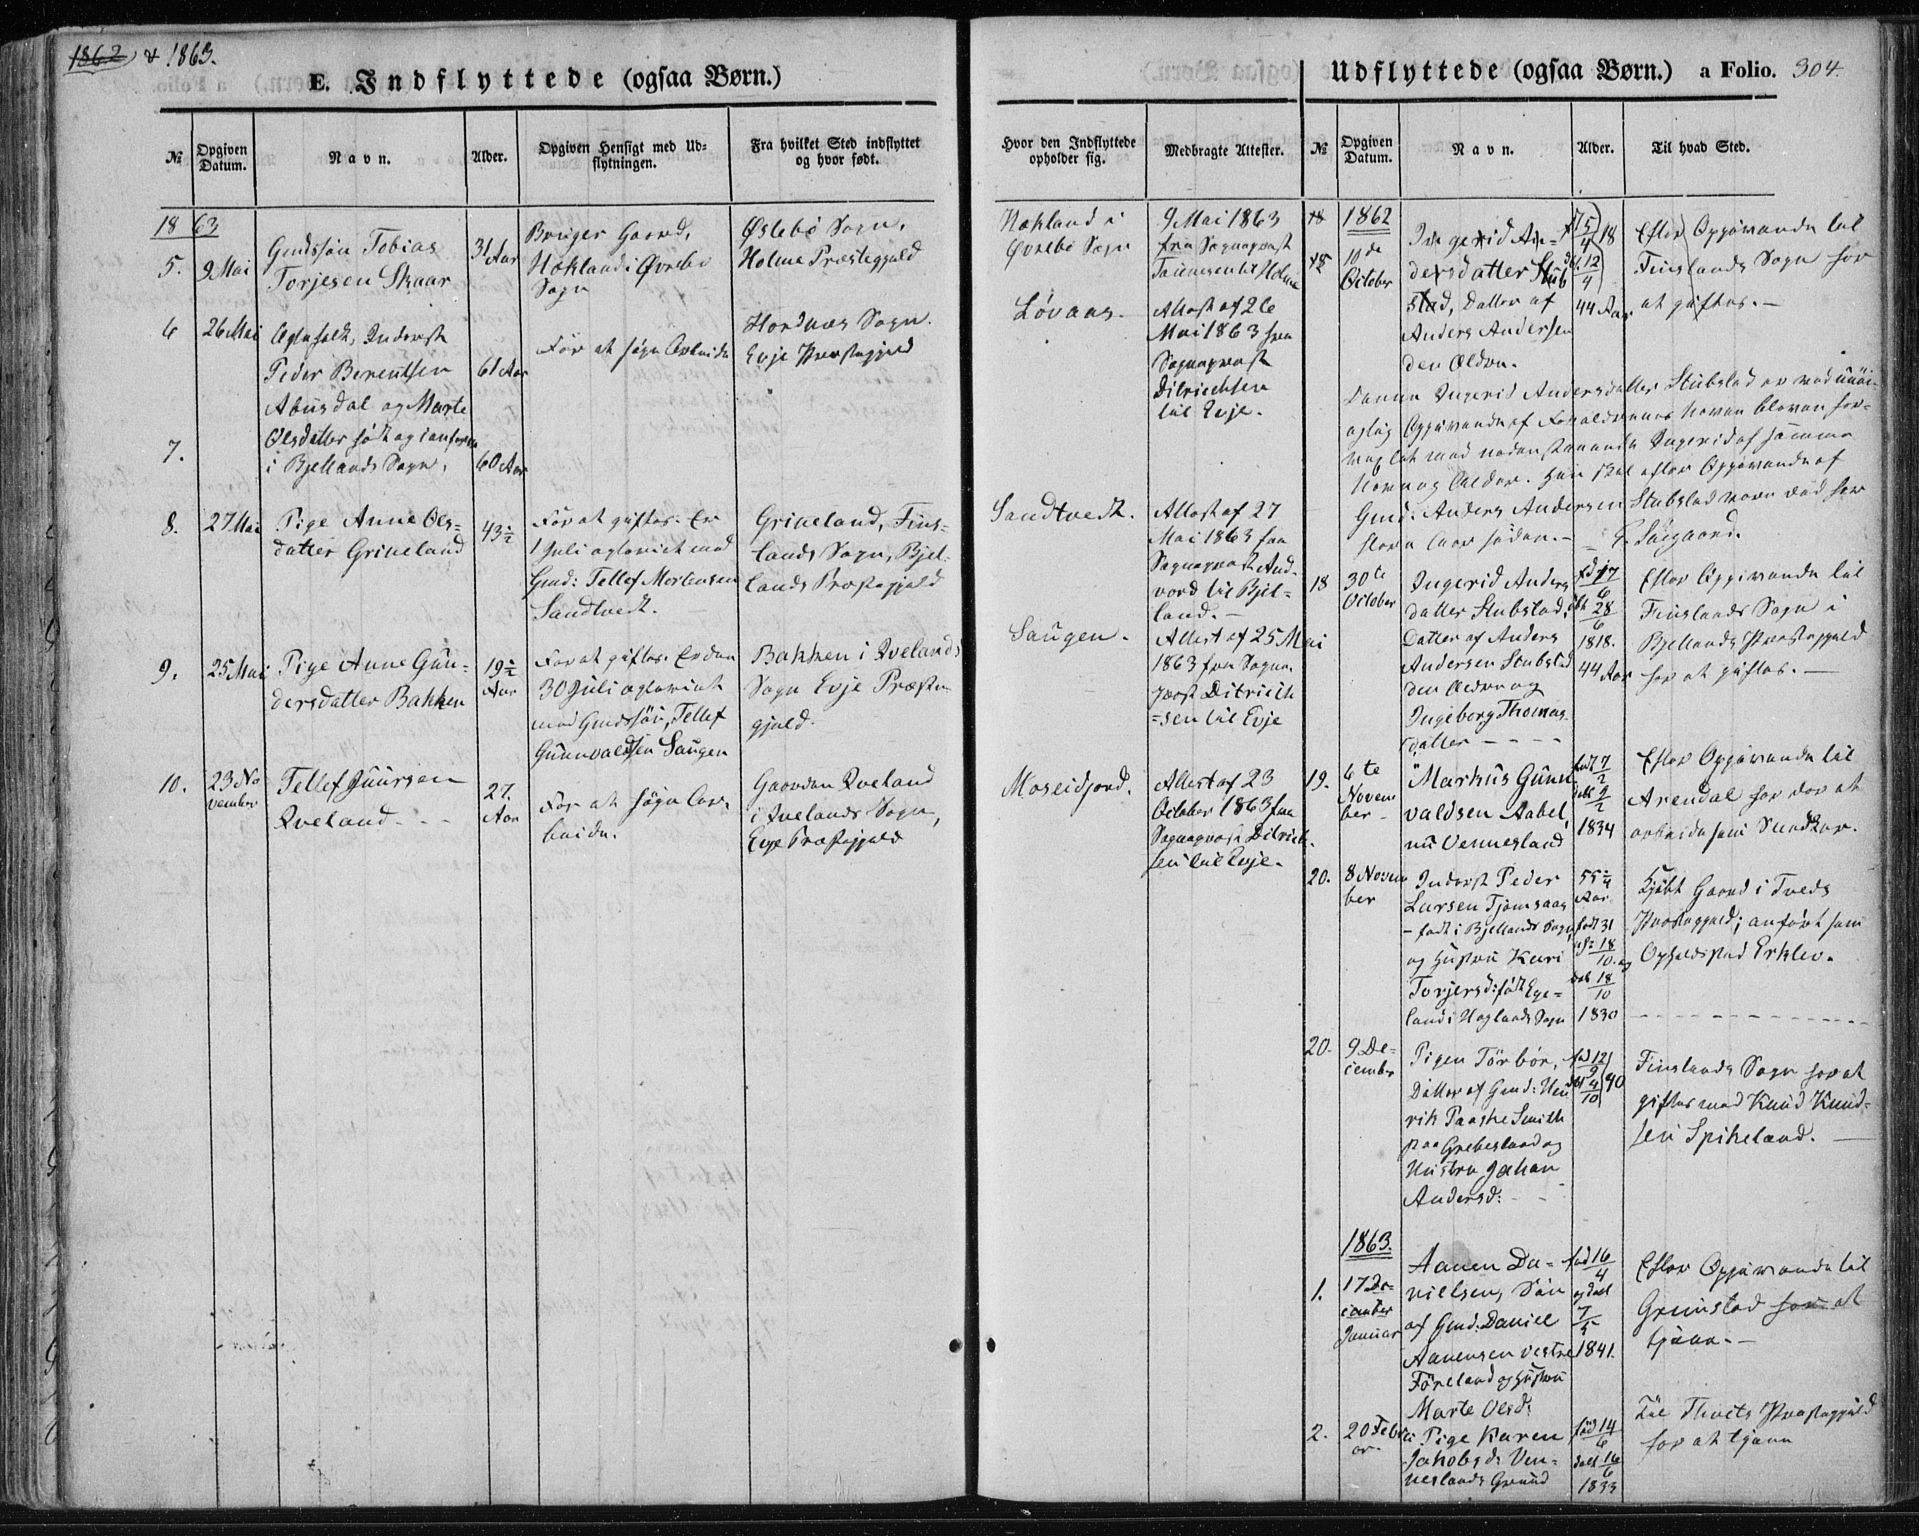 1862 & 1863.
E. Indflyttede (ogsaa Børn.)
Udflyttede (ogsaa Børn.) a Folio. 304.
№
Opgiven Datum.
Navn.
Alder.
Opgiven Hensigt med Udflytningen.
Fra hvilket Sted indflyttet og hvor født.
Hvor den Indflyttede opholder sig.
Medbragte Attester.
№
Opgiven Datum.
Navn.
Alder.
Til hvad Sted.
1863
5. 9 Mai
Gmdssøn Tobias
Torjesen Skaar
31 Aar
Bruger Gaard,
Hækland i Øvrebø
Sogn
Øslebø Sogn,
Holme Præstegjeld
Hækland i
Øvrebø Sogn
9 Mai 1863
fra Sogneprest
Taunesen til Holme
6 26 Mai
Inderst
Peder Berentsen
Abusdal og Marte
7.
Olsdatter født og
i Bjellands Sogn,
61 Aar
60 Aar
For at søge Arbeide
Hordnæs Sogn.
Evje Præstegjeld
Løvaas.
Attest af 26
Mai 1863 fra
Sogneprest
Ditrichsen
til Evje.
8. 27 Mai
Pige Anne Ols-
datter Grineland
43½
For at giftes. Er
1 Juli med
Gmd: Tellef Mortensen
Sandtvedt.
Grineland, Fins-
lands Sogn, Bjel-
lands Præstegjeld
Sandtvedt.
Attest af 27
Mai 1863 fra
Sogneprest And-
vord til Bjel-
land.
9. 25 Mai
Pige Anne Gun-
dersdatter Bakken
19½
Aar
For at giftes. Er den
30 Juli
med Gmdssøn, Tellef
Gunnvaldsen Saugen
Bakken i Qvelands
Sogn Evje Præste-
gjeld.
Saugen.
Attest af 25 Mai
1863 fra Sogne-
prest Ditrich-
sen til Evje
10. 23 No
vember
Tellef Guursen
Qveland
27.
Aar
For at søge Ar-
beide.
Gaarden Qveland
i Qvelands Sogn,
Evje Præstegjeld
Moseidjord.
Attest af 23
October 1863 fra
Sogneprest Ditrich-
sen til Evje.
18 1862
18 10de
October
Ingerid An-
dersdatter Stub
stad, Datter af
Anders Andersen
den Ældre.
44 Aar
Efter Opgivende til
Finslands Sogn for
at giftes.
Denne Ingerid Andersdatter Stubstad er ved urig-
tig Opgivende af Forældrenes Navn bleven for-
vexlet med nedenstaaende Ingerid af samme
Navn og Alder. Hun skal efter Opgivende af
Gmd: Anders Andersen Stubstad være død for
flere Aar siden.
18 30te
October
Ingerid Anders
datter Stubstad,
Datter af Anders
Andersen Stubstad
den Ældre og
Ingeborg Thomas
datter
fød 17/6
28/6
1818.
44 Aar
Efter Opgivende til
Finslands Sogn i
Bjellands Præstegjeld
for at giftes.
19. 6te
Novem
ber
Markus Gunn
valdsen Aabel,
nu Vennesland
født 7/2
døbt 9/2
1834
Efter Opgivende til
Arendal for der at
arbeide som Snedker.
20. 8 Novem
ber
Inderst Peder
Larsen Tjomsaas
født i Bjellands Sogn,
og Hustru Kari
Torjersd: født Ege-
land i Hæglands Sogn
55¼
Aar
født 31
18/10 og
døbt 18/10
1830
Kjøbt Gaard i Tveds
Præstegjeld; anført som
Opholdssted Erklev.
20. 9 De-
cember
Pigen Tørbor,
Datter af Gmd: Hen
rik Paaske Smith
paa Grebesland og
Hustru Johan
Andersd:
fød 12/9
døbt 4/10 40
Finslands Sogn for at
giftes med Knud Knud-
sen Spikeland.
1863.
1. 17 De-
cember
Januar
Aanen Da-
nielsen, Søn
af Gmd: Daniel
Aanensen vestre
Føreland og Hustru
Marte Olsd:
fød 16/4
og døbt
7/5
1841.
Efter Opgivende til
Grimstad for at
tjene.
2. 20 Febr
ar.
Pige Karen
Jakobsd: Ven-
neslands Grund
fød 14/6
døbt 16/6
1833
Til Tveits Præstegjeld
for at tjene